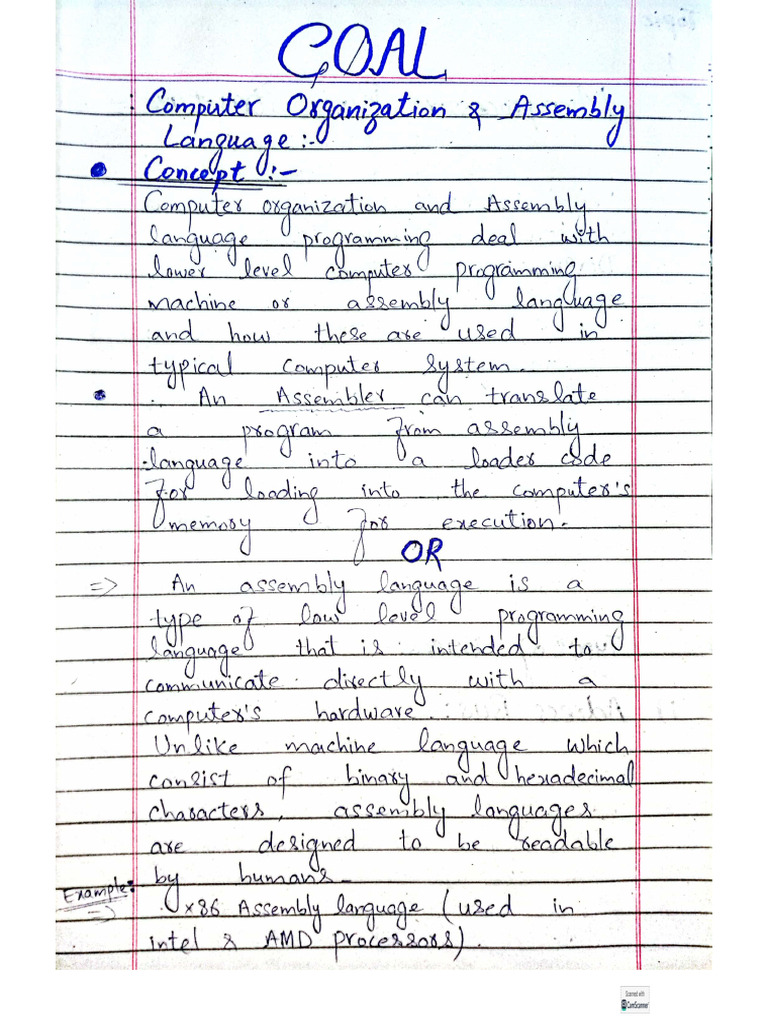 COAL
: Computer Organization & Assembly
Language :-
• Concept :-
Computer organization and Assembly
language programming deal with
lower level computer programming
machine or assembly language
and how these are used in
typical computer system.
• An Assembler can translate
a program from assembly
language into a loader code
for loading into the computer's
memory for execution.
OR
=> An assembly language is a
type of low level programming
language that is intended to
communicate directly with a
computer's hardware.
Unlike machine language which
consist of binary and hexadecimal
characters, assembly languages
are designed to be readable
by humans.
Example:
=> x86 Assembly language (used in
intel & AMD processors).
Scanned with
CamScanner